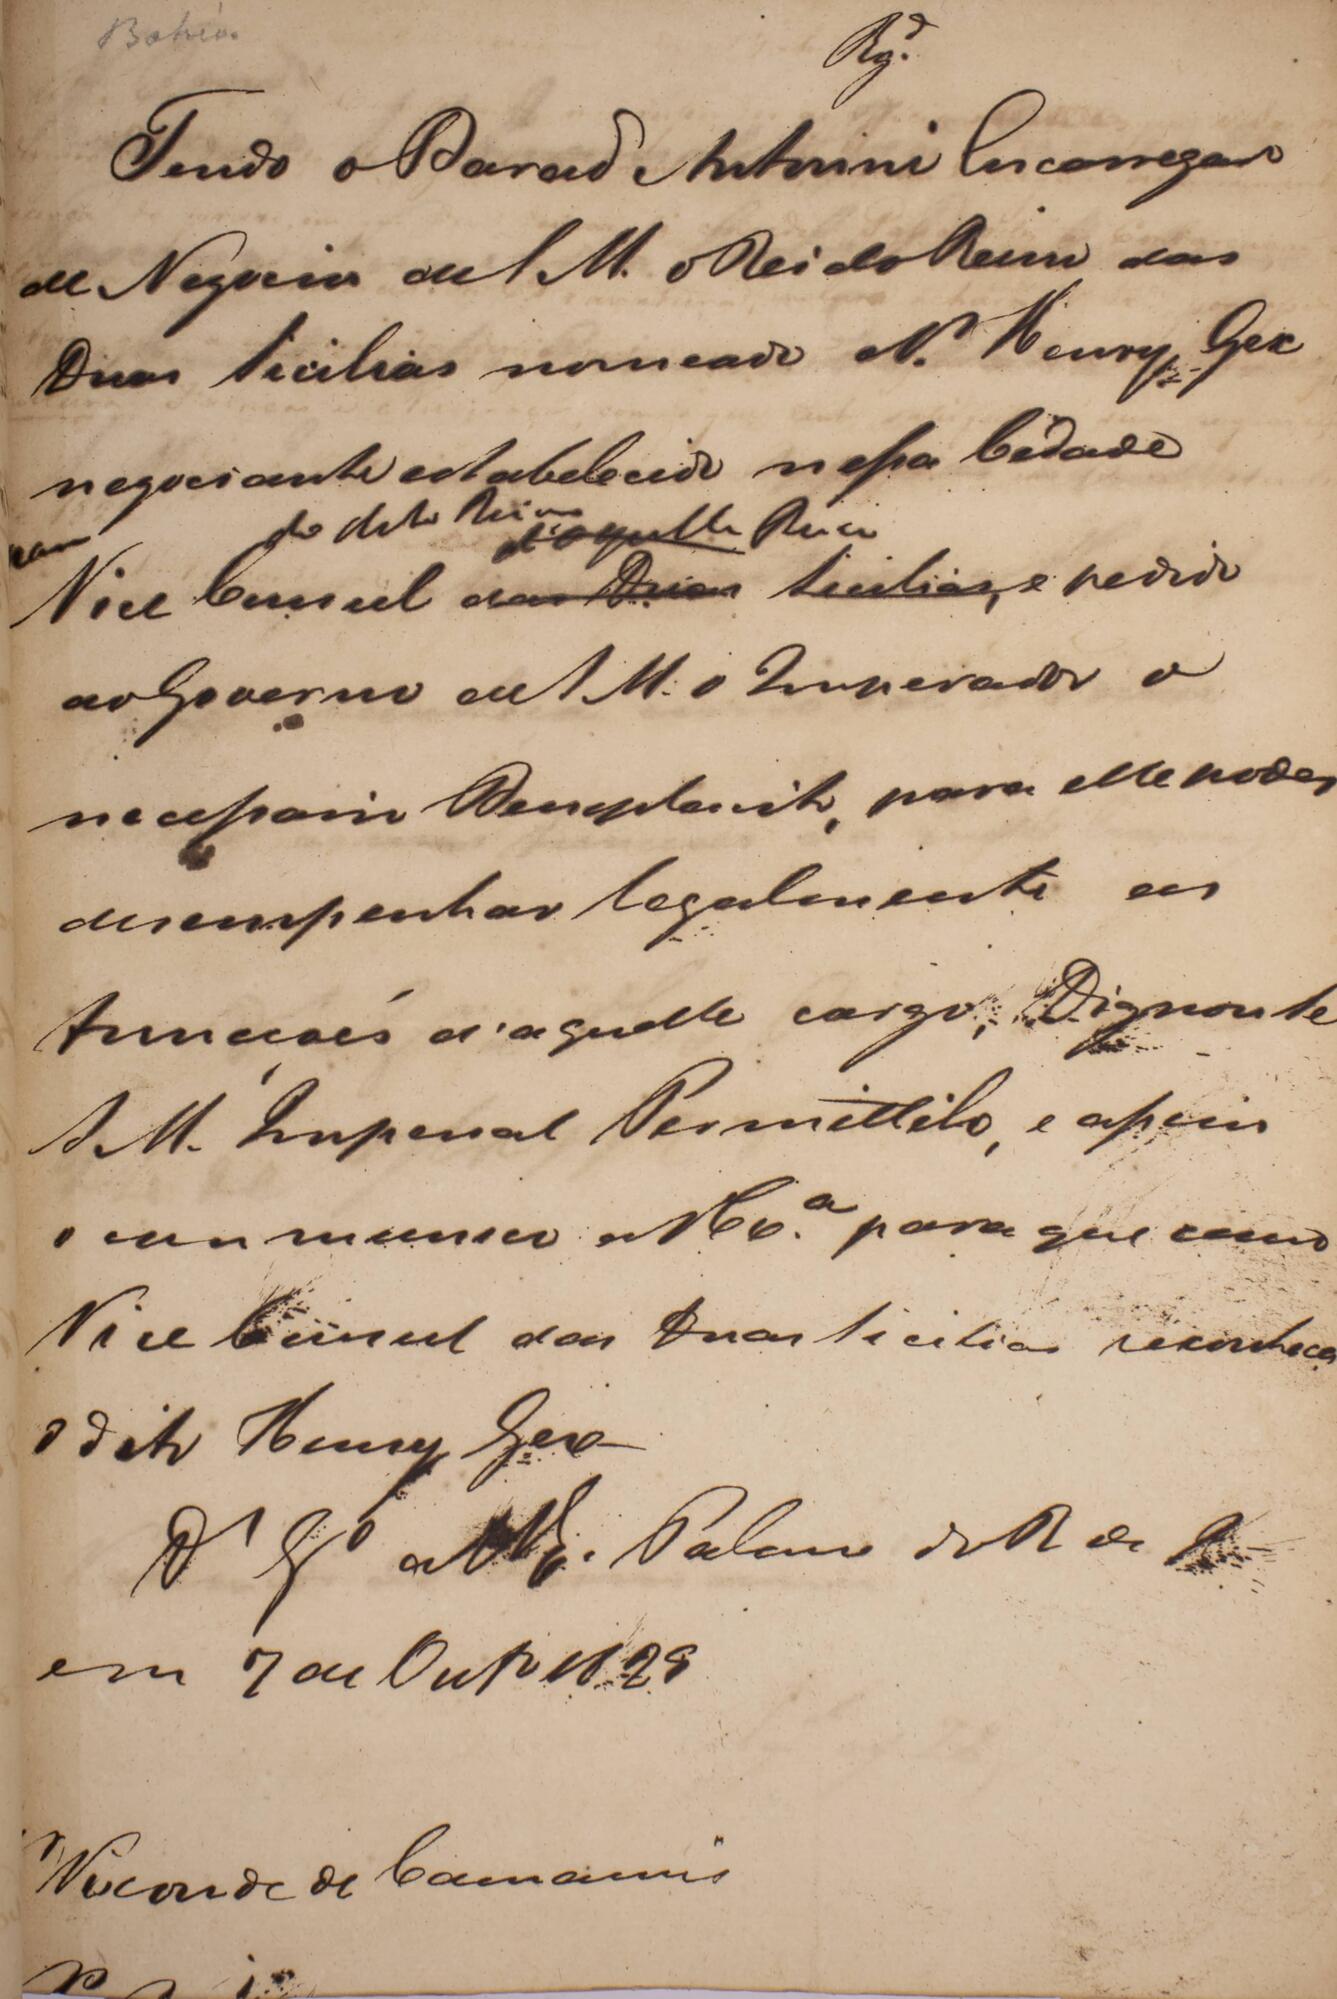 Bahia.
Rg.do
Tendo o Barão Antonini Encarregado
de Negocios de S M. o Rei do Reino das
Duas Sicilias nomeado a Mr. Henry Gex
negociante estabelecido nessa Cidade
para do dito Reino d'aquelle Reino
Vice Consul das Duas Sicilias, e pedido
ao Governo de S M. o Imperador o
necessario Beneplacito, para elle poder
desempenhar legalmente as
funcçoẽs d'aquelle cargo, Dignou-se
S M. Imperial Permittilo, e assim
o communico a V Ex.a para que como
Vice Consul das Duas Sicilias reconheça
o dito Henry Gex
Ds Ge a V Ex. Palacio do R de J
em 7 de Outbro 1829
Sr Visconde de Camamú